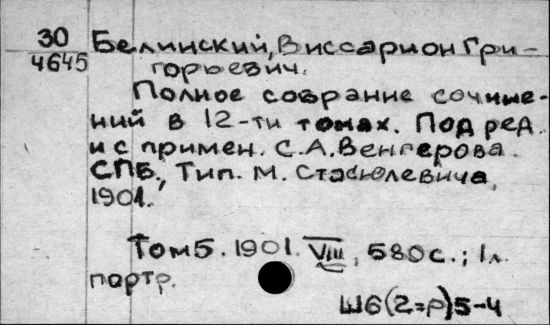 30 Белинский, Виссарион Гри-
4645 горьевич.
Полное собрание сочине-
ний в 12-ти томах. Под ред.
и с примен. С.А.Венгерова.
СПБ., Тип. М. Стасюлевича,
1901.
Том 5. 1901. VIII, 580 с.; 1 л.
портр.
Ш6(2=Р)5-4